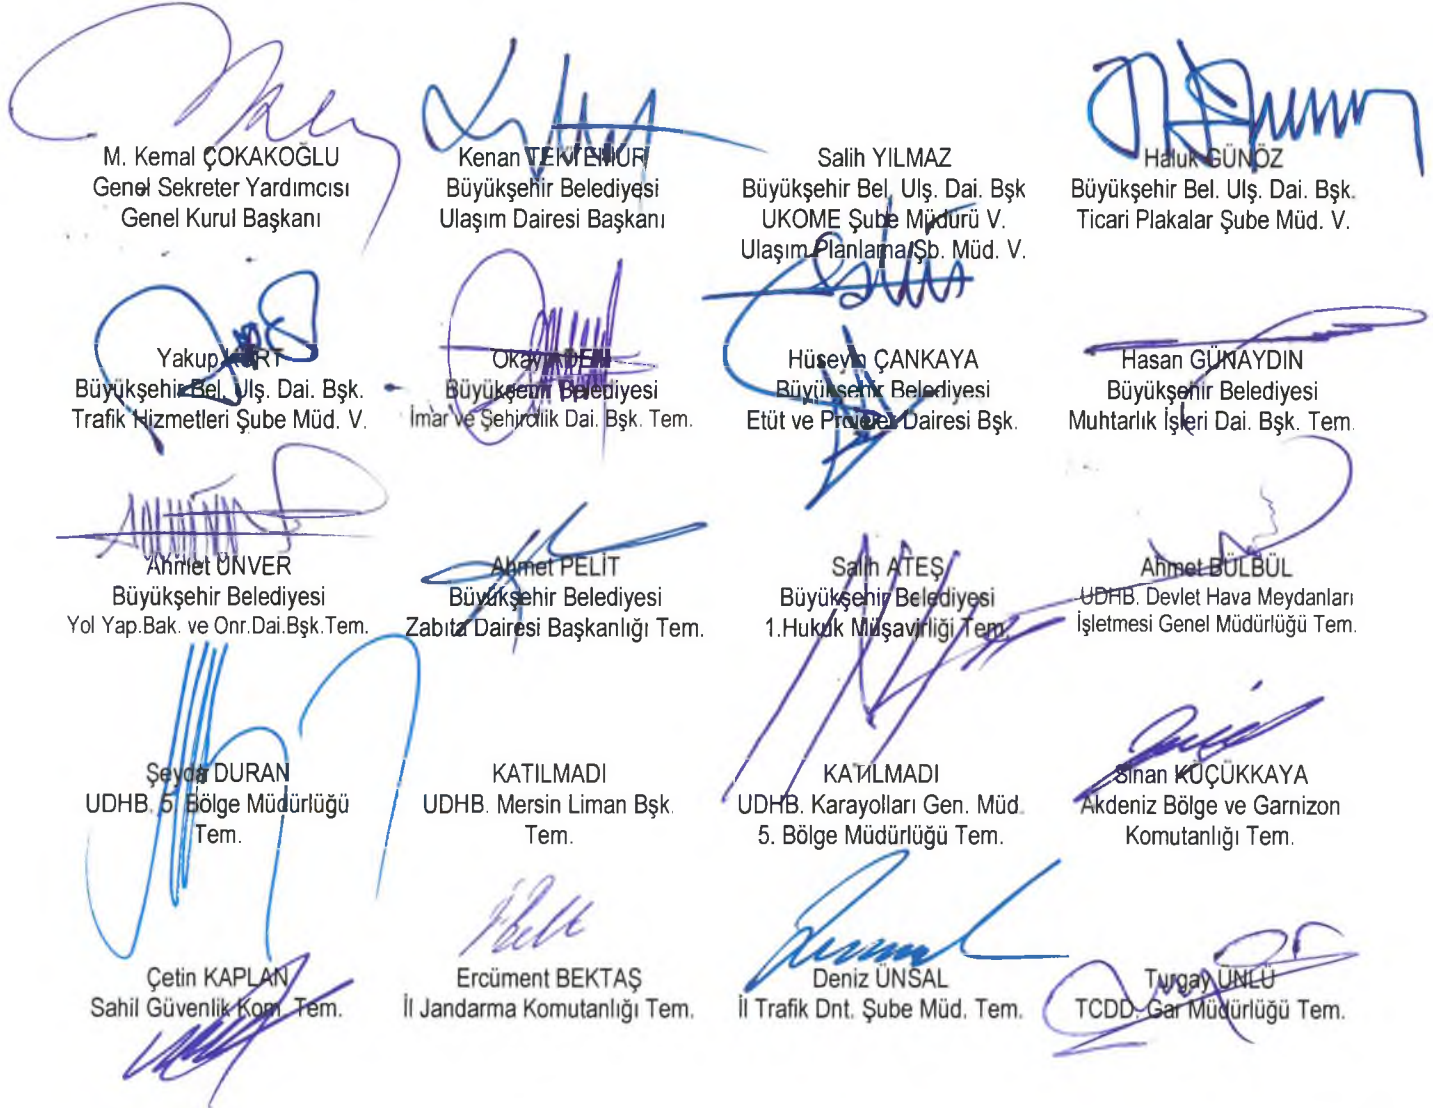 M. Kemal ÇOKAKOĞLU
Genel Sekreter Yardımcısı
Genel Kurul Başkanı
Kenan
Büyükşehir Belediyesi
Ulaşım Dairesi Başkanı
Salih YILMAZ
Büyükşehir Bel. Ulş. Dai. Bşk
UKOME Şube Müdürü V.
Ulaşım Planlama Şb. Müd. V.
Haluk GÜNÖZ
Büyükşehir Bel. Ulş. Dai. Bşk.
Ticari Plakalar Şube Müd. V.
Yakup KURT
Büyükşehir Bel. Ulş. Dai. Bşk.
Trafik Hizmetleri Şube Müd. V.
Okay
Büyükşehir Belediyesi
İmar ve Şehircilik Dai. Bşk. Tem.
Hüseyin ÇANKAYA
Büyükşehir Belediyesi
Etüt ve Projeler Dairesi Bşk.
Hasan GÜNAYDIN
Büyükşehir Belediyesi
Muhtarlık İşleri Dai. Bşk. Tem.
Ahmet ÜNVER
Büyükşehir Belediyesi
Yol Yap.Bak. ve Onr.Dai.Bşk.Tem.
Ahmet PELİT
Büyükşehir Belediyesi
Zabıta Dairesi Başkanlığı Tem.
Salih ATEŞ
Büyükşehir Belediyesi
1.Hukuk Müşavirliği Tem.
Ahmet BÜLBÜL
UDHB. Devlet Hava Meydanları
İşletmesi Genel Müdürlüğü Tem.
Şeyda DURAN
UDHB. 5. Bölge Müdürlüğü
Tem.
KATILMADI
UDHB. Mersin Liman Bşk.
Tem.
KATILMADI
UDHB. Karayolları Gen. Müd.
5. Bölge Müdürlüğü Tem.
Sinan KÜÇÜKKAYA
Akdeniz Bölge ve Garnizon
Komutanlığı Tem.
Çetin KAPLAN
Sahil Güvenlik Kom. Tem.
Ercüment BEKTAŞ
İl Jandarma Komutanlığı Tem.
Deniz ÜNSAL
İl Trafik Dnt. Şube Müd. Tem.
Turgay ÜNLÜ
TCDD. Gar Müdürlüğü Tem.